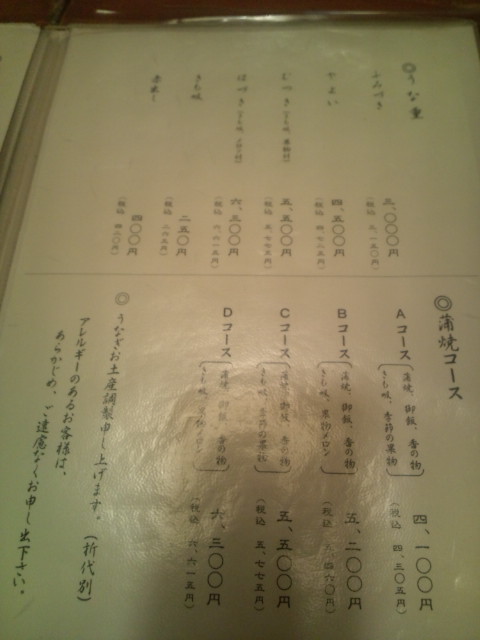 ◎うな重
ふみづき 三、〇〇〇円
(税込 三、一五〇円)
やよい 四、五〇〇円
(税込 四、七二五円)
むつき(きも吸、果物付) 五、五〇〇円
(税込 五、七七五円)
はづき(きも吸、メロン付) 六、三〇〇円
(税込 六、六一五円)
きも吸 二五〇円
(税込 二六二円)
赤出し 四〇〇円
(税込 四二〇円)
◎蒲焼コース
Aコース 蒲焼、御飯、香の物 四、一〇〇円
きも吸、季節の果物 (税込 四、三〇五円)
Bコース 蒲焼、御飯、香の物 五、二〇〇円
きも吸、果物メロン (税込 五、四六〇円)
Cコース 蒲焼、御飯、香の物 五、五〇〇円
きも吸、季節の果物 (税込 五、七七五円)
Dコース 蒲焼、御飯、香の物 六、三〇〇円
きも吸、果物メロン (税込 六、六一五円)
◎うなぎお土産調製申し上げます。(折代別)
アレルギーのあるお客様は、
あらかじめ、ご遠慮なくお申し出下さい。